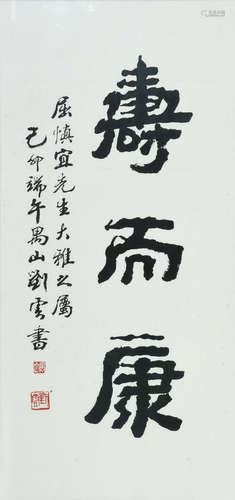 壽而康
屈慎宜先生大雅之屬
己卯端午禺山劉雲書